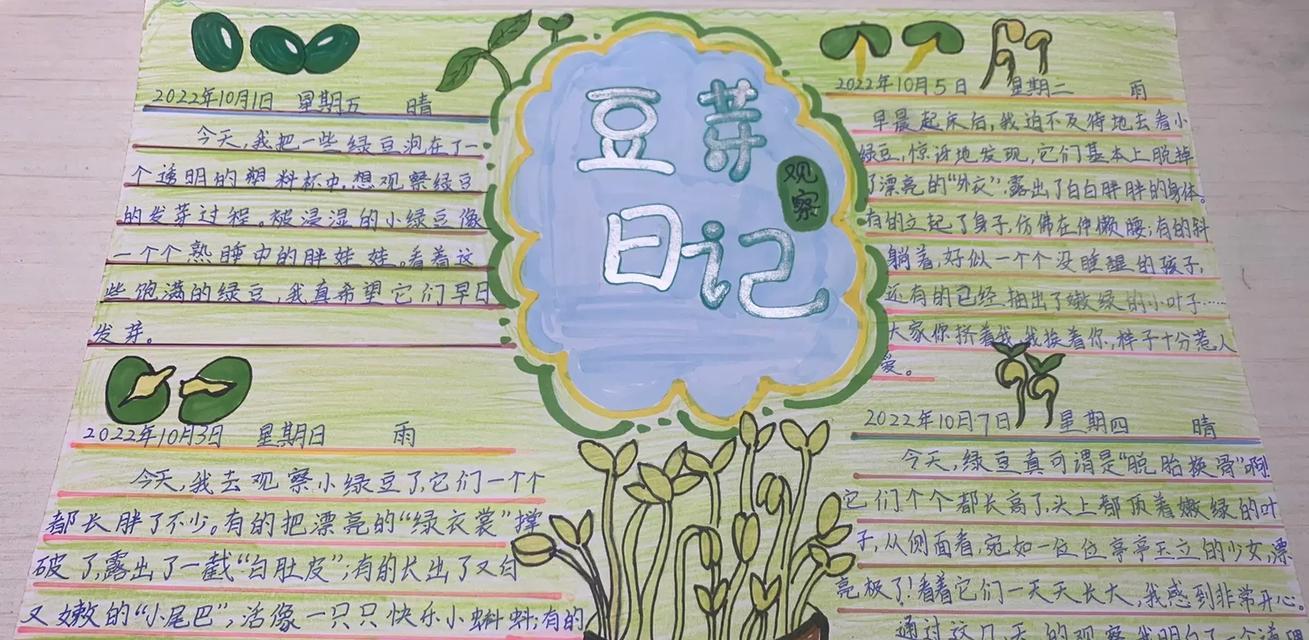 豆芽
观察
日记
2022年10月1日 星期五 晴
今天,我把一些绿豆泡在了一
个透明的塑料杯中,想观察绿豆
的发芽过程。被浸湿的小绿豆像
一个个熟睡中的胖娃娃。看着这
些饱满的绿豆,我真希望它们早日
发芽。
2022年10月3日 星期日 雨
今天,我去观察小绿豆了,它们一个个
都长胖了不少。有的把漂亮的“绿衣裳”撑
破了,露出了一截“白肚皮”;有的长出了又白
又嫩的“小尾巴”,活像一只只快乐小蝌蚪;有的
2022年10月5日 星期二 雨
早晨起床后,我迫不及待地去看小
绿豆,惊讶地发现,它们基本上脱掉
了漂亮的“外衣”,露出了白白胖胖的身体。
有的立起了身子,仿佛在伸懒腰;有的斜
躺着,好似一个个没睡醒的孩子,
还有的已经抽出了嫩绿的小叶子……
大家你挤着我,我挨着你,样子十分惹人
爱。
2022年10月7日 星期四 晴
今天,绿豆真可谓是“脱胎换骨”啊!
它们个个都长高了,头上都顶着嫩绿的叶
子,从侧面看,宛如一位位亭亭玉立的少女,漂
亮极了!看着它们一天天长大,我感到非常开心。
通过这几天的观察,我明白了一个道理